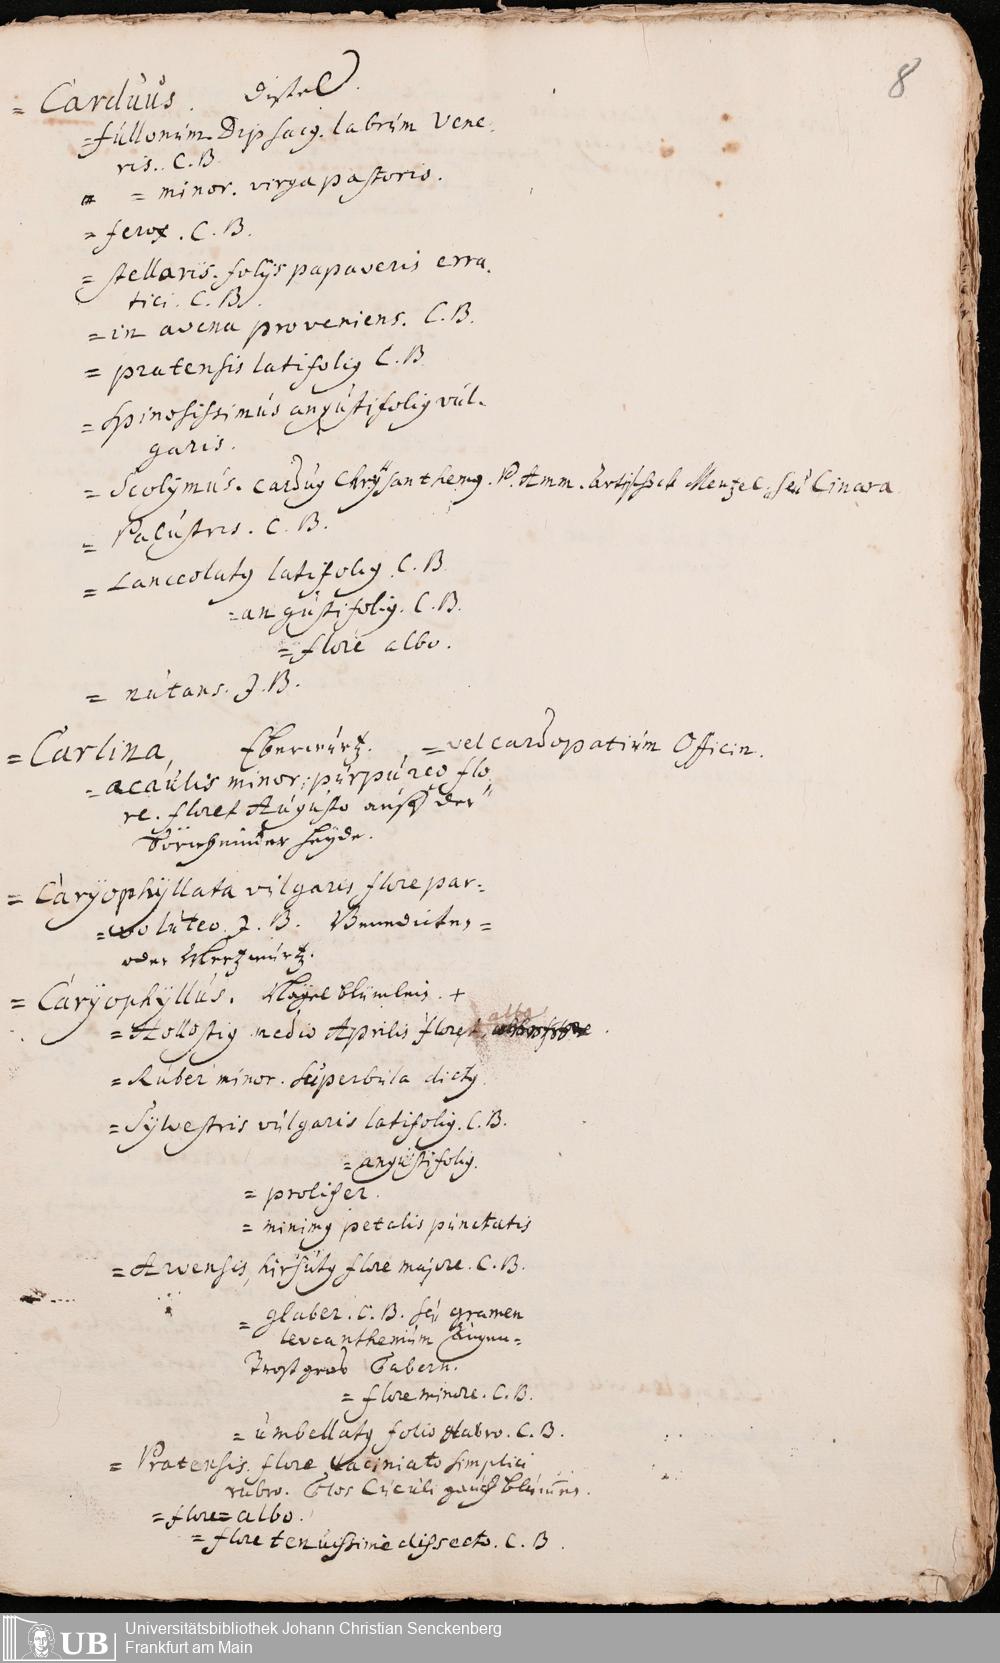 8
= Carduus. Distel.
= fullonum. Dipsacg. labrum Vene-
ris. C.B.
" = minor. virga pastoris.
= ferox. C.B.
= stellaris. folijs papaveris erra.
tici. C.B.
= in avena proveniens. C.B.
= pratensis latifolig C.B.
= Spinosissimus angustifolig vul-
garis.
= Scolymus. cardug Chrysanthemg. P. Amm. Artischok Menzel. seu Cinara
= Palustris. C.B.
= Lanceolatg latifolig C.B.
= angustifolig. C.B.
= flore albo.
= nutans. J.B.
= Carlina, Eberwurtz. = vel cardopatium Officin.
= acaulis minor; purpureo flo
re. floret Augusto auff der
heyde.
= Caryophyllata vulgaris flore par-
= vo luteo. J.B. Benedicten =
oder Mertzwurtz.
= Caryophyllus. Nägelblümlein. +
= Holostig medio Aprilis floret, albo
= Ruber minor. superbula dictg
= Sylvestris vulgaris latifolig. C.B.
= angustifolig.
= prolifer.
= minimg petalis punctatis
= Arvensis, hirsutg flore majore. C.B.
= glaber. C.B. seu gramen
leucanthemum Augen-
trostgras Tabern.
= flore minore. C.B.
= umbellatg folio glabro. C.B.
= Pratensis. flore laciniato simplici
rubro. Flos Cuculi gauchblumen.
= flore = albo.
= flore tenuissime dissecto. C.B.
UB Universitätsbibliothek Johann Christian Senckenberg
Frankfurt am Main